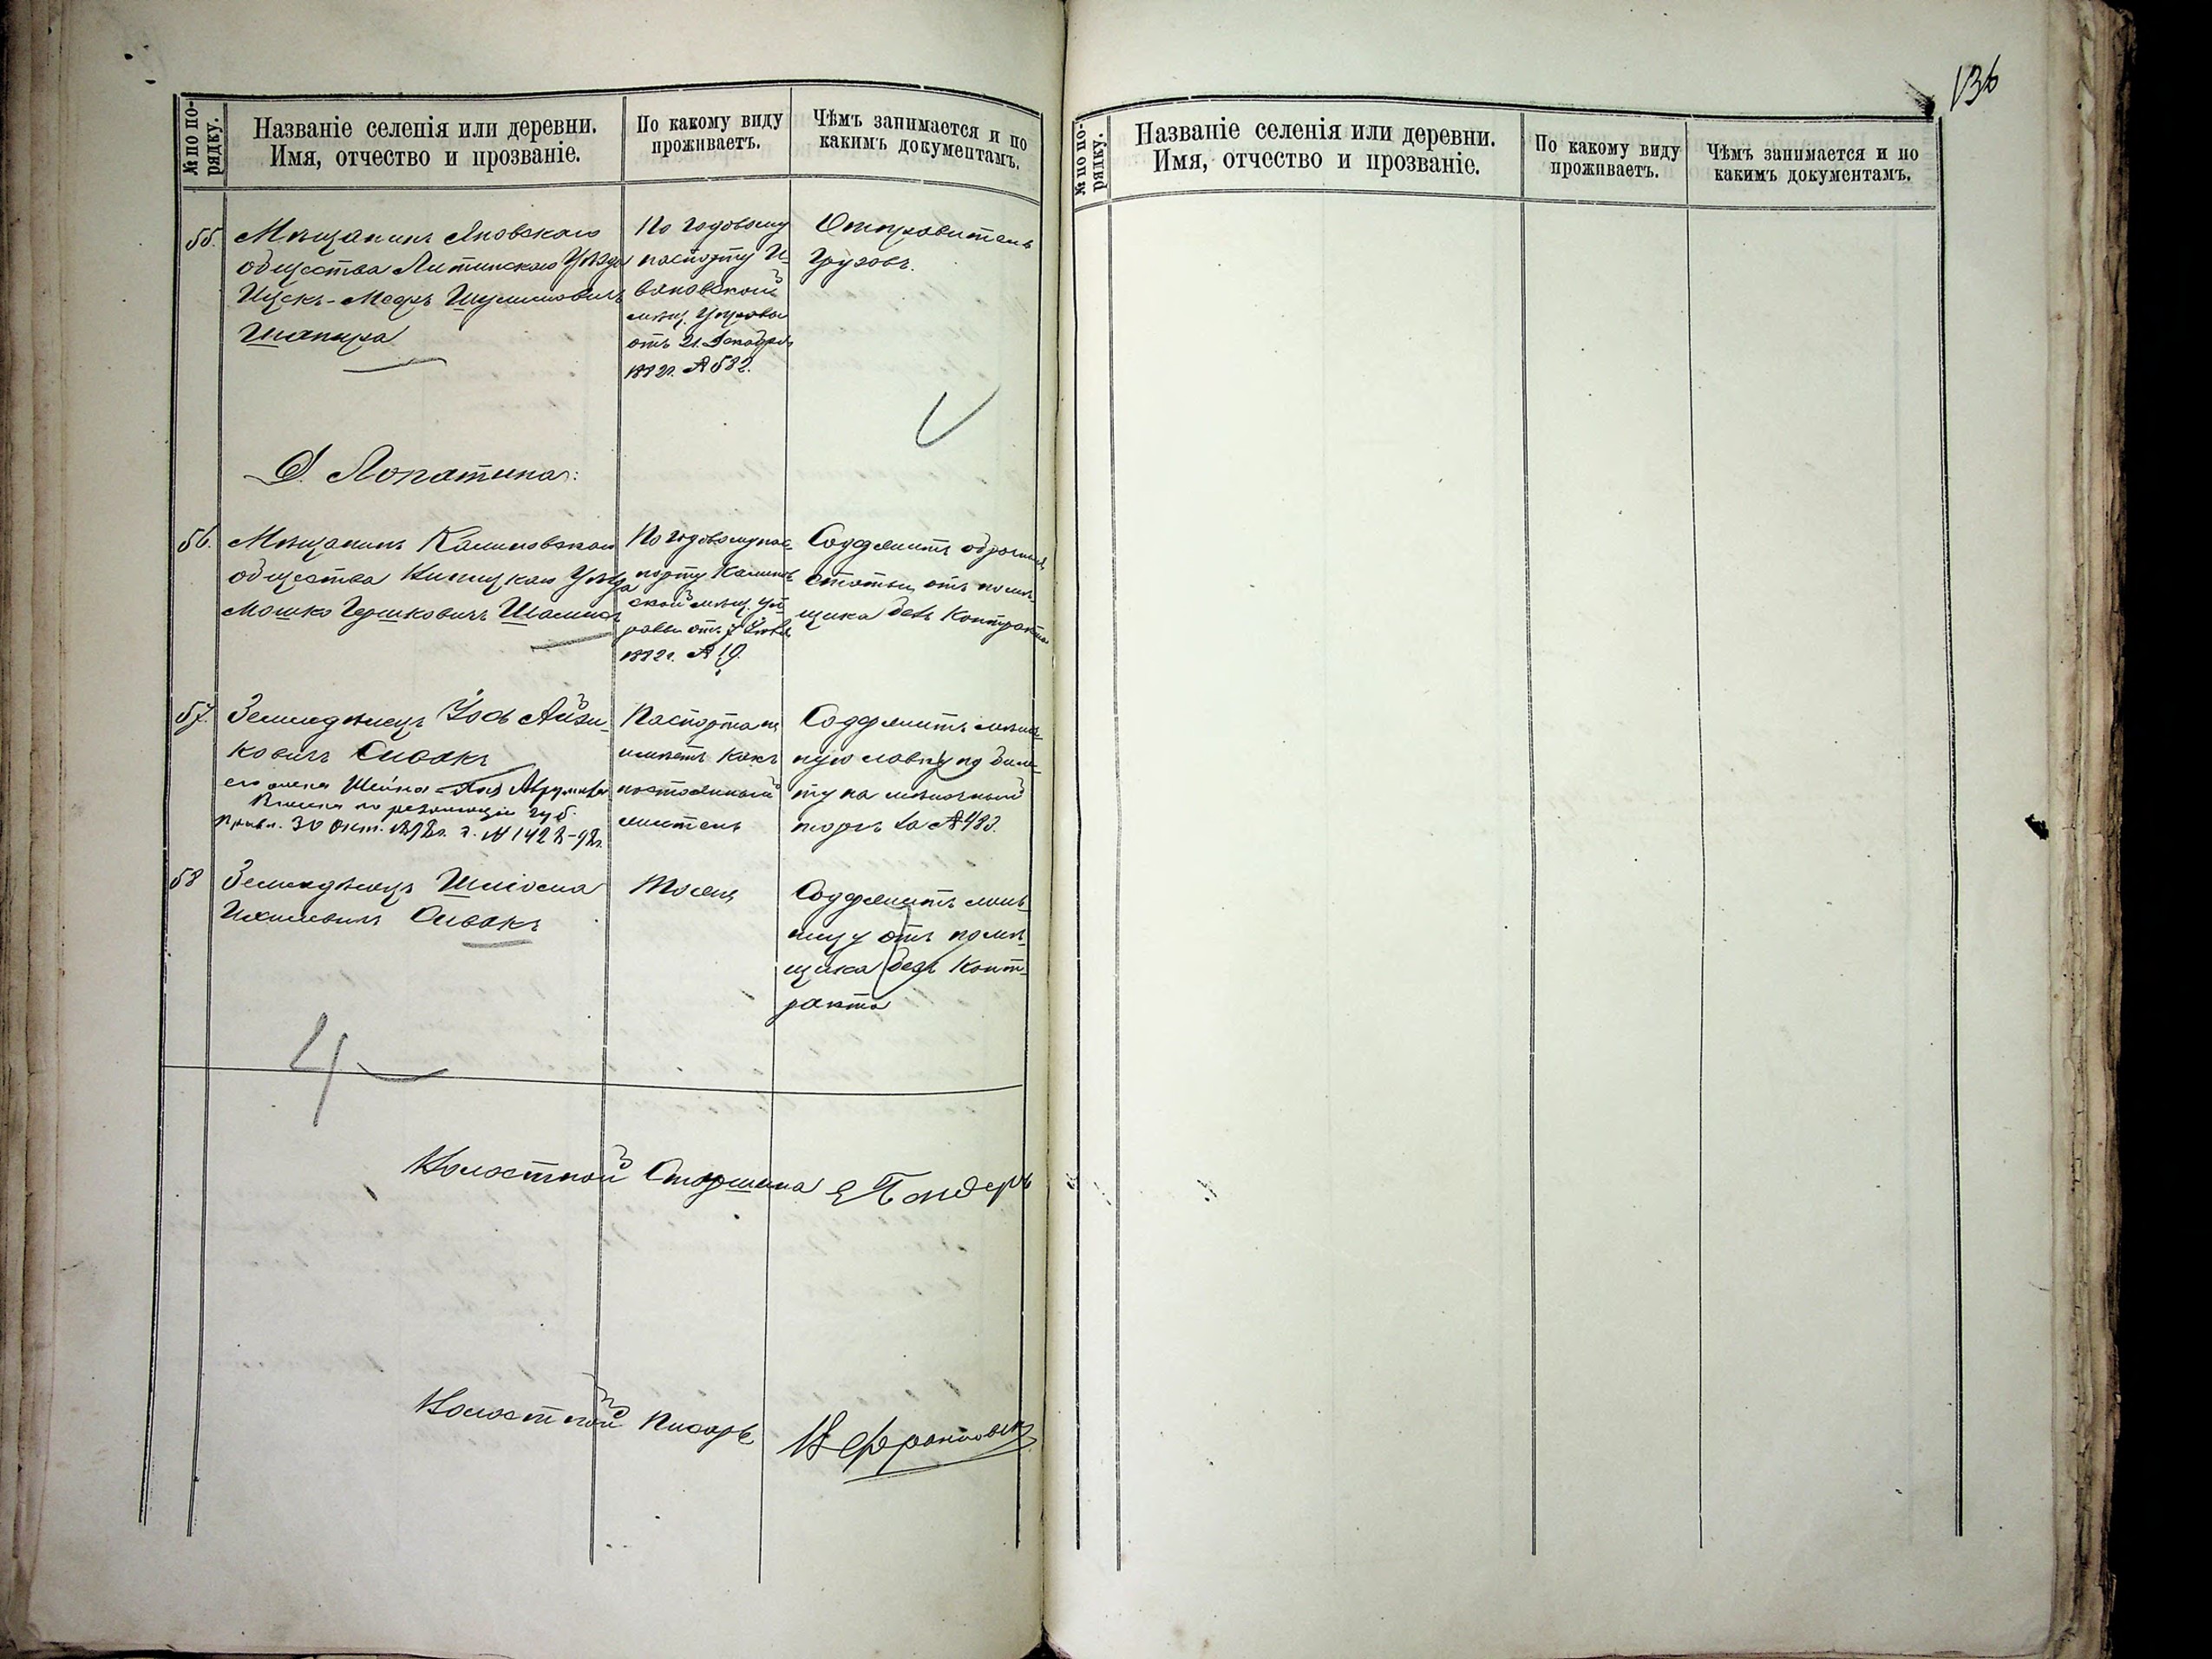 136
№ по по-
рядку.
Названіе селенія или деревни.
Имя, отчество и прозваніе.
По какому виду
проживаетъ.
Чѣмъ занимается и по
какимъ документамъ.
55.
Мѣщанинъ Яновскаго
общества Литинскаго Уѣзда
Ицекъ-Мееръ Шулимовичъ
Шапира
По годовому
паспорту И-
вановской
мѣщ. Управы
отъ 21 Декабря
1882г. № 582.
Отправитель
грузовъ.
Д. Лопатина:
56.
Мѣщанинъ Калиновскаго
общества Винницкаго Уѣзда
Мошко Гершковичъ
По годовому пас-
порту Калинов
ской мѣщ. Уп
равы отъ 7
1882г. № 19.
Содержитъ оброчныя
статьи отъ помѣ-
щика безъ контракта
57.
Земледѣлецъ Іось Айзи-
ковичъ Спивакъ
его жена Шейна
по резолюціи Губ.
Правл. 30 Окт. 1898г. з. № 1428-98г.
Паспорта не
имѣетъ какъ
постоянный
житель
Содержитъ мѣлоч-
ную лавку по биле-
ту на мѣлочный
торгъ за № 483.
58
Земледѣлецъ Шліома
Спивакъ
Тоже
Содержитъ мель-
ницу отъ помѣ-
щика безъ конт-
ракта
4
Волостной Старшина
Волостной Писарь
№ по по-
рядку.
Названіе селенія или деревни.
Имя, отчество и прозваніе.
По какому виду
проживаетъ.
Чѣмъ занимается и по
какимъ документамъ.